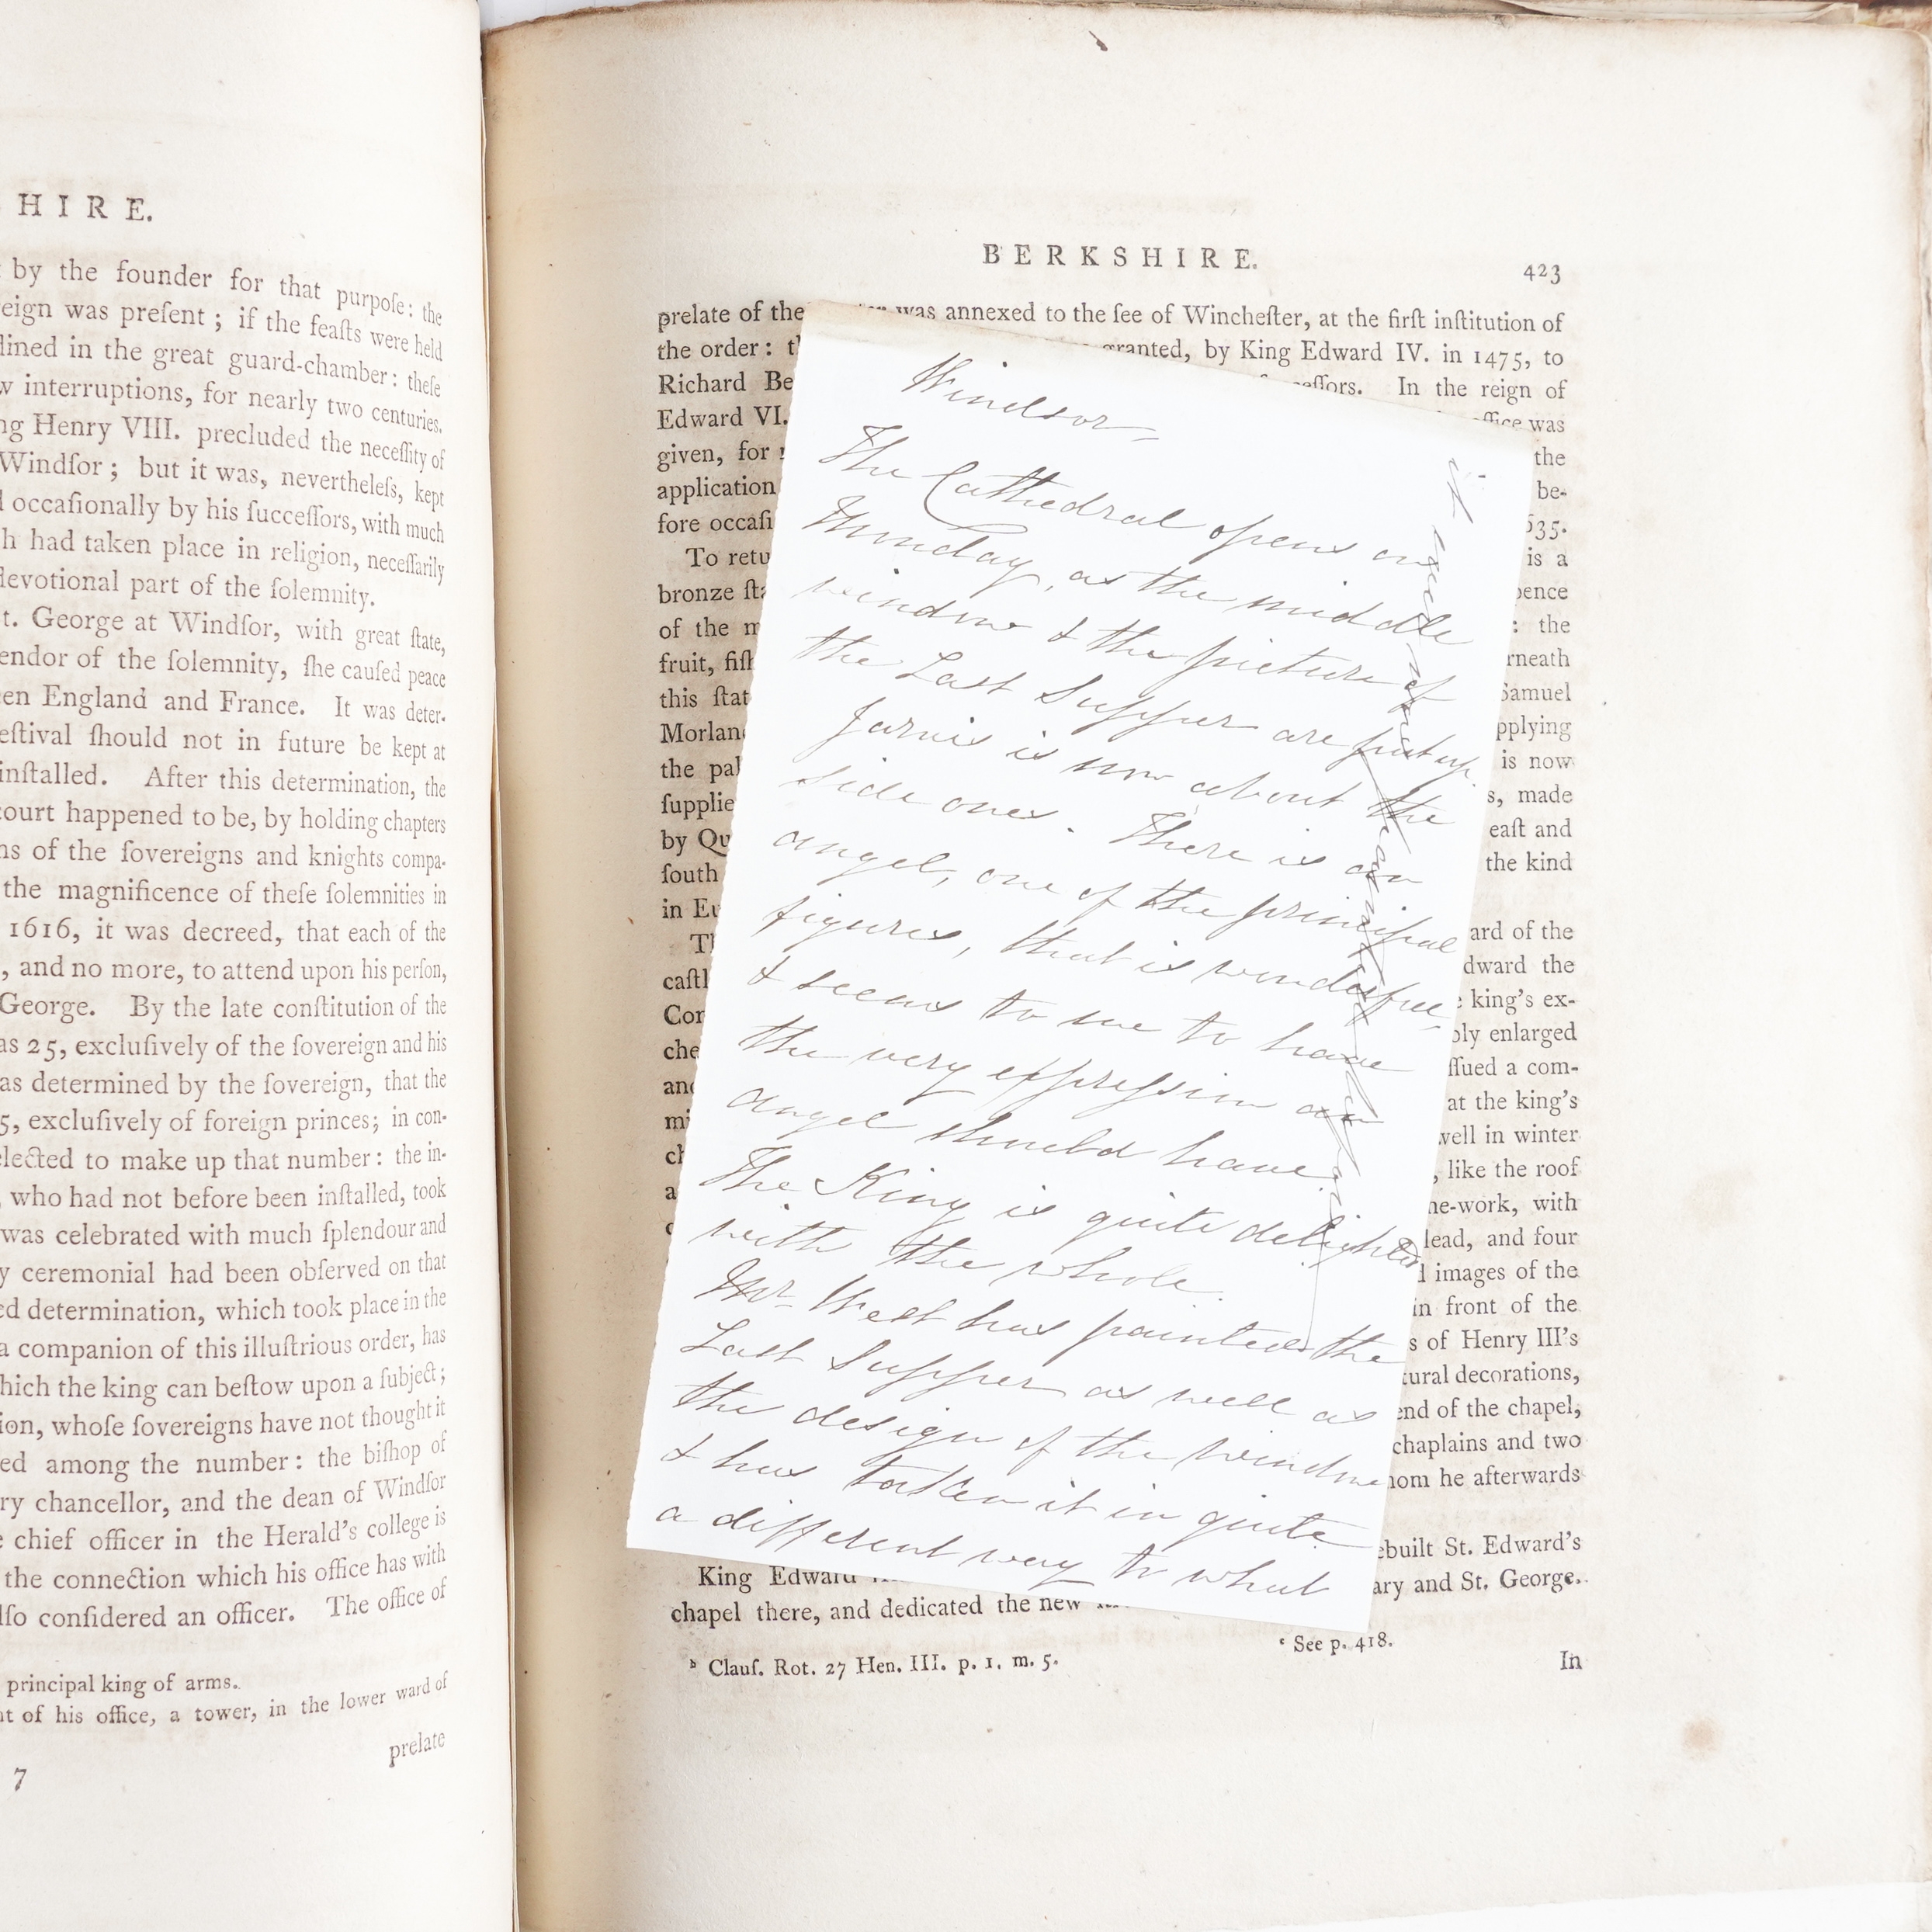 HIRE.
by the founder for that purpoſe: the
eign was preſent; if the feaſts were held
lined in the great guard-chamber: theſe
w interruptions, for nearly two centuries.
ng Henry VIII. precluded the neceſſity of
Windſor; but it was, nevertheleſs, kept
occaſionally by his ſucceſſors, with much
h had taken place in religion, neceſſarily
devotional part of the ſolemnity.
t. George at Windſor, with great ſtate,
endor of the ſolemnity, ſhe cauſed peace
en England and France. It was deter-
eſtival ſhould not in future be kept at
inſtalled. After this determination, the
court happened to be, by holding chapters
ns of the ſovereigns and knights compa-
the magnificence of theſe ſolemnities in
1616, it was decreed, that each of the
, and no more, to attend upon his perſon,
George. By the late conſtitution of the
as 25, excluſively of the ſovereign and his
as determined by the ſovereign, that the
5, excluſively of foreign princes; in con-
elected to make up that number: the in-
, who had not before been inſtalled, took
was celebrated with much ſplendour and
y ceremonial had been obſerved on that
ed determination, which took place in the
a companion of this illuſtrious order, has
hich the king can beſtow upon a ſubject;
ion, whoſe ſovereigns have not thought it
ed among the number: the biſhop of
ry chancellor, and the dean of Windſor
e chief officer in the Herald's college is
the connection which his office has with
lſo conſidered an officer. The office of
principal king of arms.
nt of his office, a tower, in the lower ward of
prelate
7
BERKSHIRE.
423
prelate of the was annexed to the ſee of Wincheſter, at the firſt inſtitution of
the order: granted, by King Edward IV. in 1475, to
Richard Be eſſors. In the reign of
Edward VI. office was
given, for the
application be-
fore occaſi 635.
To retu is a
bronze ſta pence
of the m : the
fruit, fiſh rneath
this ſtat Samuel
Morlan pplying
the pal is now
ſupplie s, made
by Qu eaſt and
ſouth the kind
in Eu
Th ard of the
caſtl dward the
Cor e king's ex-
che bly enlarged
and ſſued a com-
mi at the king's
ch well in winter
a , like the roof
c me-work, with
lead, and four
images of the
in front of the
s of Henry III's
tural decorations,
end of the chapel,
chaplains and two
hom he afterwards
ebuilt St. Edward's
King Edward ary and St. George.
chapel there, and dedicated the new
ᵇ Clauſ. Rot. 27 Hen. III. p. 1. m. 5.
ᶜ See p. 418.
In
Windsor
The Cathedral opens on
Munday, as the middle
window & the picture of
the Last Supper are put up.
Jarvis is now about the
side ones. There is an
angel, one of the principal
figures, that is wonderful,
& seems to me to have
the very expreſsion an
angel should have.
The King is quite delighted
with the whole.
Mr. West has painted the
Last Supper as well as
the design of the window
& has taken it in quite
a different way to what